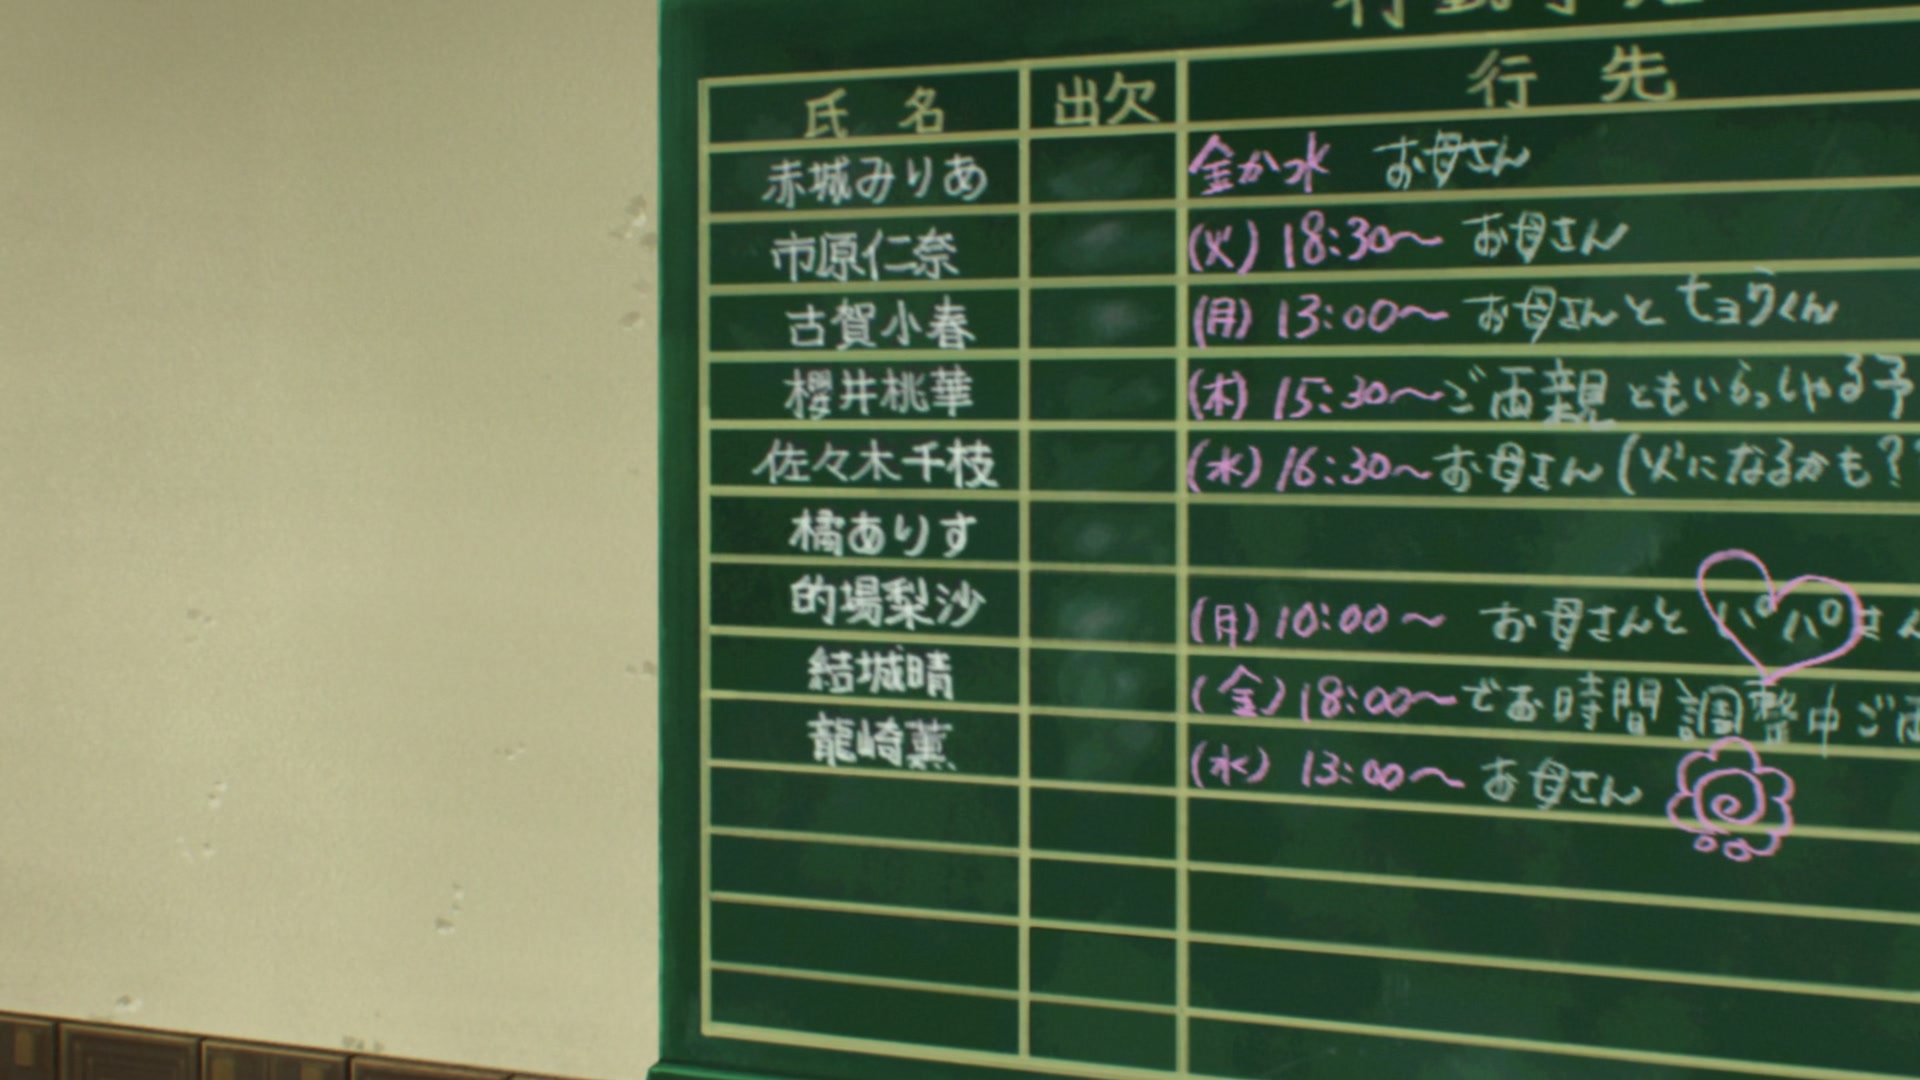 行動予定
氏名 出欠 行先
赤城みりあ 金か水 お母さん
市原仁奈 (火) 18:30〜 お母さん
古賀小春 (月) 13:00〜 お母さんと ヒョウくん
櫻井桃華 (木) 15:30〜ご両親ともいらっしゃる予
佐々木千枝 (水) 16:30〜お母さん (火になるかも?
橘ありす
的場梨沙 (月) 10:00〜 お母さんと パパさん
結城晴 (金) 18:00〜でお時間調整中ご両
龍崎薫 (水) 13:00〜 お母さん